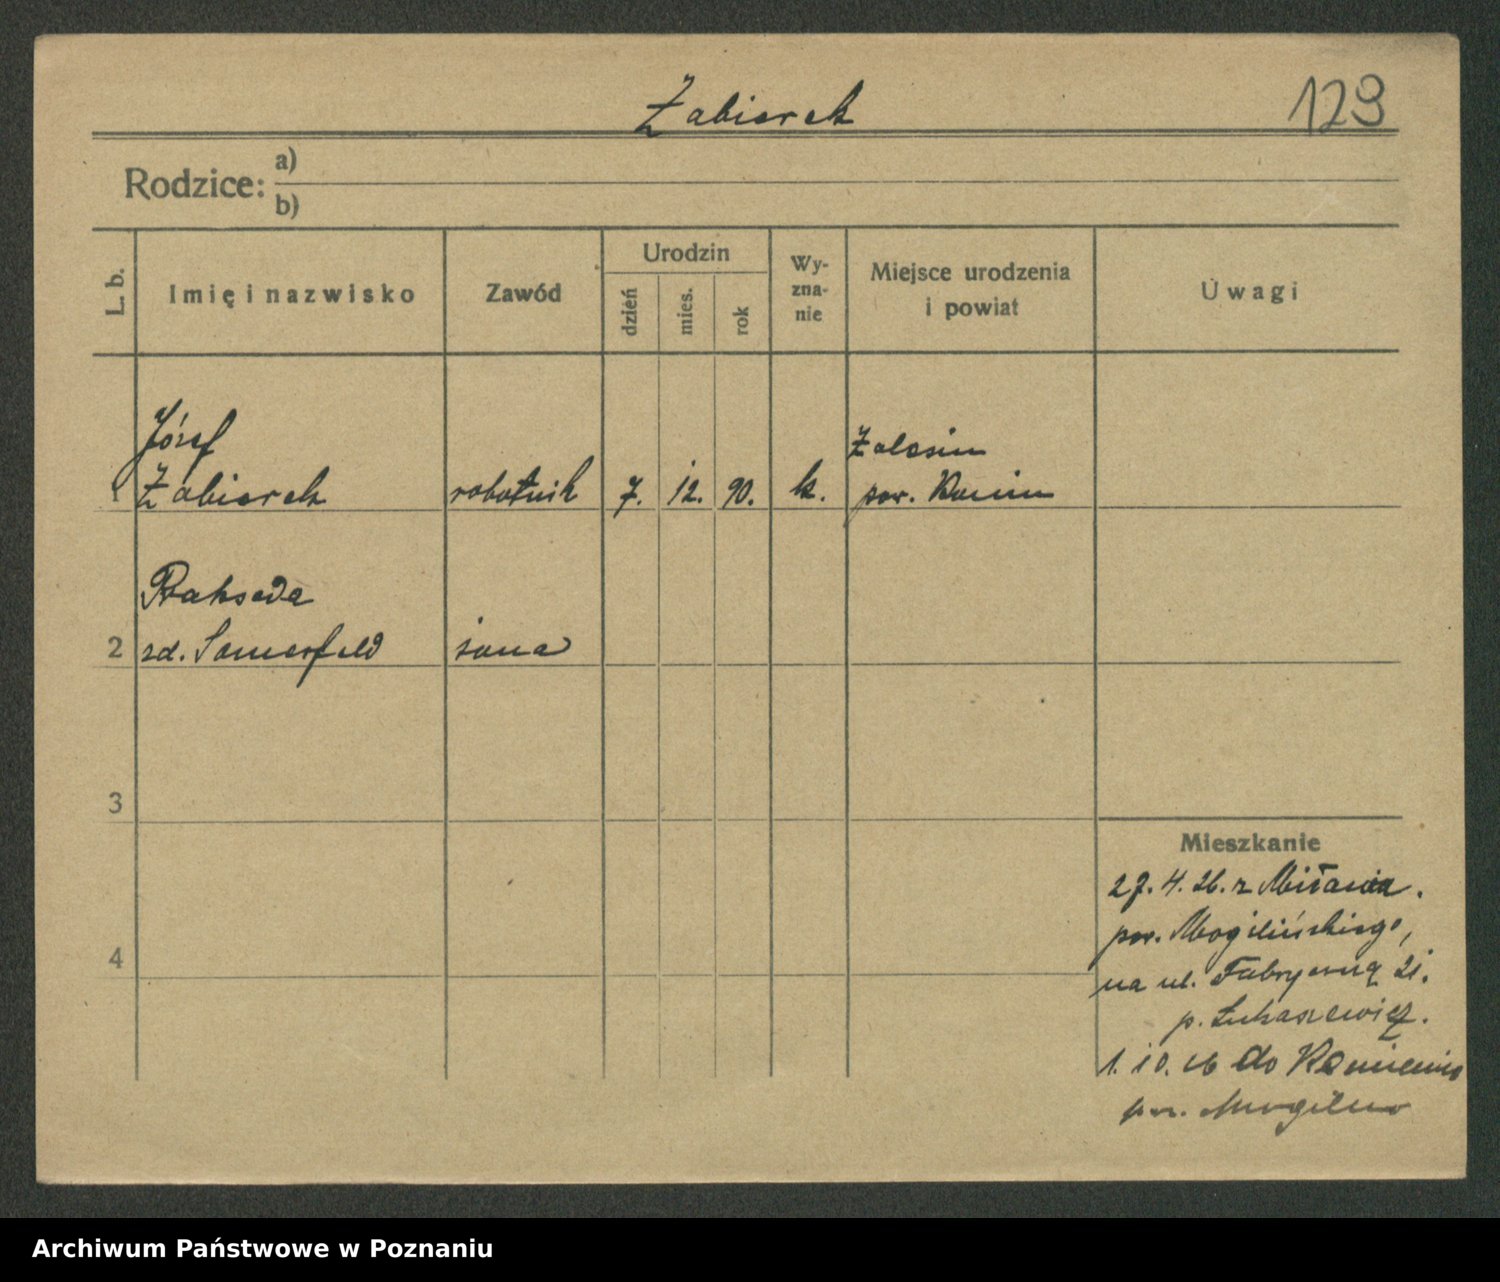 Żabierek
129
Rodzice: a)
b)
L. b.
Imię i nazwisko
Zawód
Urodzin
dzień
mies.
rok
Wy-
zna-
nie
Miejsce urodzenia
i powiat
Uwagi
Józef
1 Żabierek robotnik 7. 12. 90. k.
pow. Konin
Prakseda
2 zd. Somerfeld żona
3
4
Mieszkanie
27. 4. 26. z
pow. Mogilińskiego,
na ul. Fabryczną 21.
p. Łukaszewicz.
1. 10. 26 do
pow. Mogilno
Archiwum Państwowe w Poznaniu